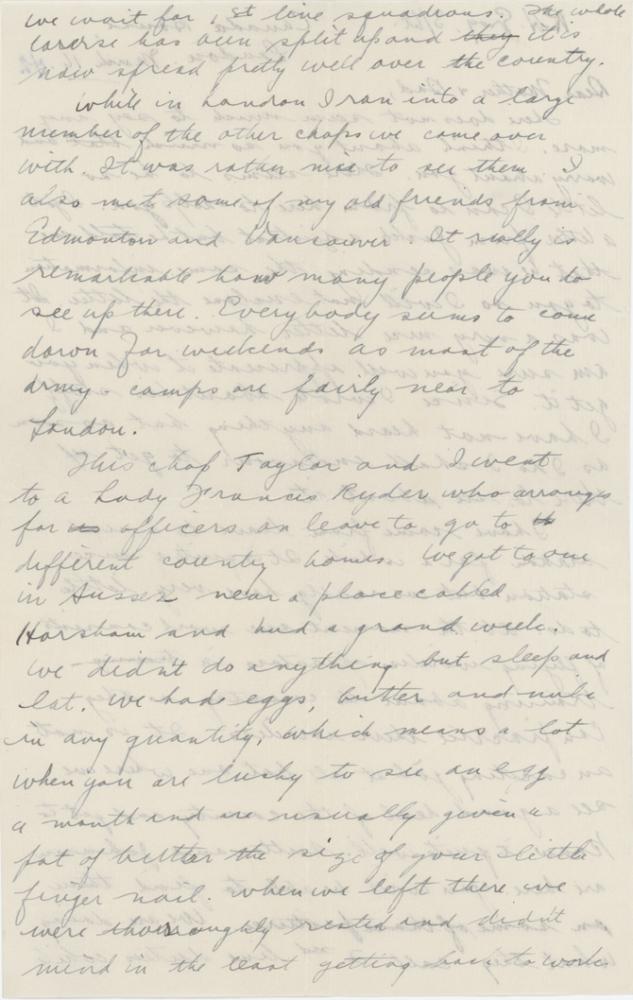 we wait for 1st line squadrons. The whole
coarse has been split up and they it is
now spread pretty well over the country.
While in London I ran into a large
number of the other chaps we came over
with. It was rather nice to see them I
also met some of my old friends from
Edmonton and Vancouver. It really is
remarkable how many people you do
see up there. Everybody seems to come
down for weekends as most of the
army camps are fairly near to
London.
This chap Taylor and I went
to a Lady Francis Ryder who arranges
for us officers on leave to go to
different country homes. We got to one
in Sussex near a place called
Horsham and had a grand week.
We didn't do anything but sleep and
eat. We had eggs, butter and milk
in any quantity, which means a lot
when you are lucky to see an egg
a month and are usually given a
pat of butter the size of your little
finger nail. When we left there we
were thoroughly rested and didn't
mind in the least getting back to work